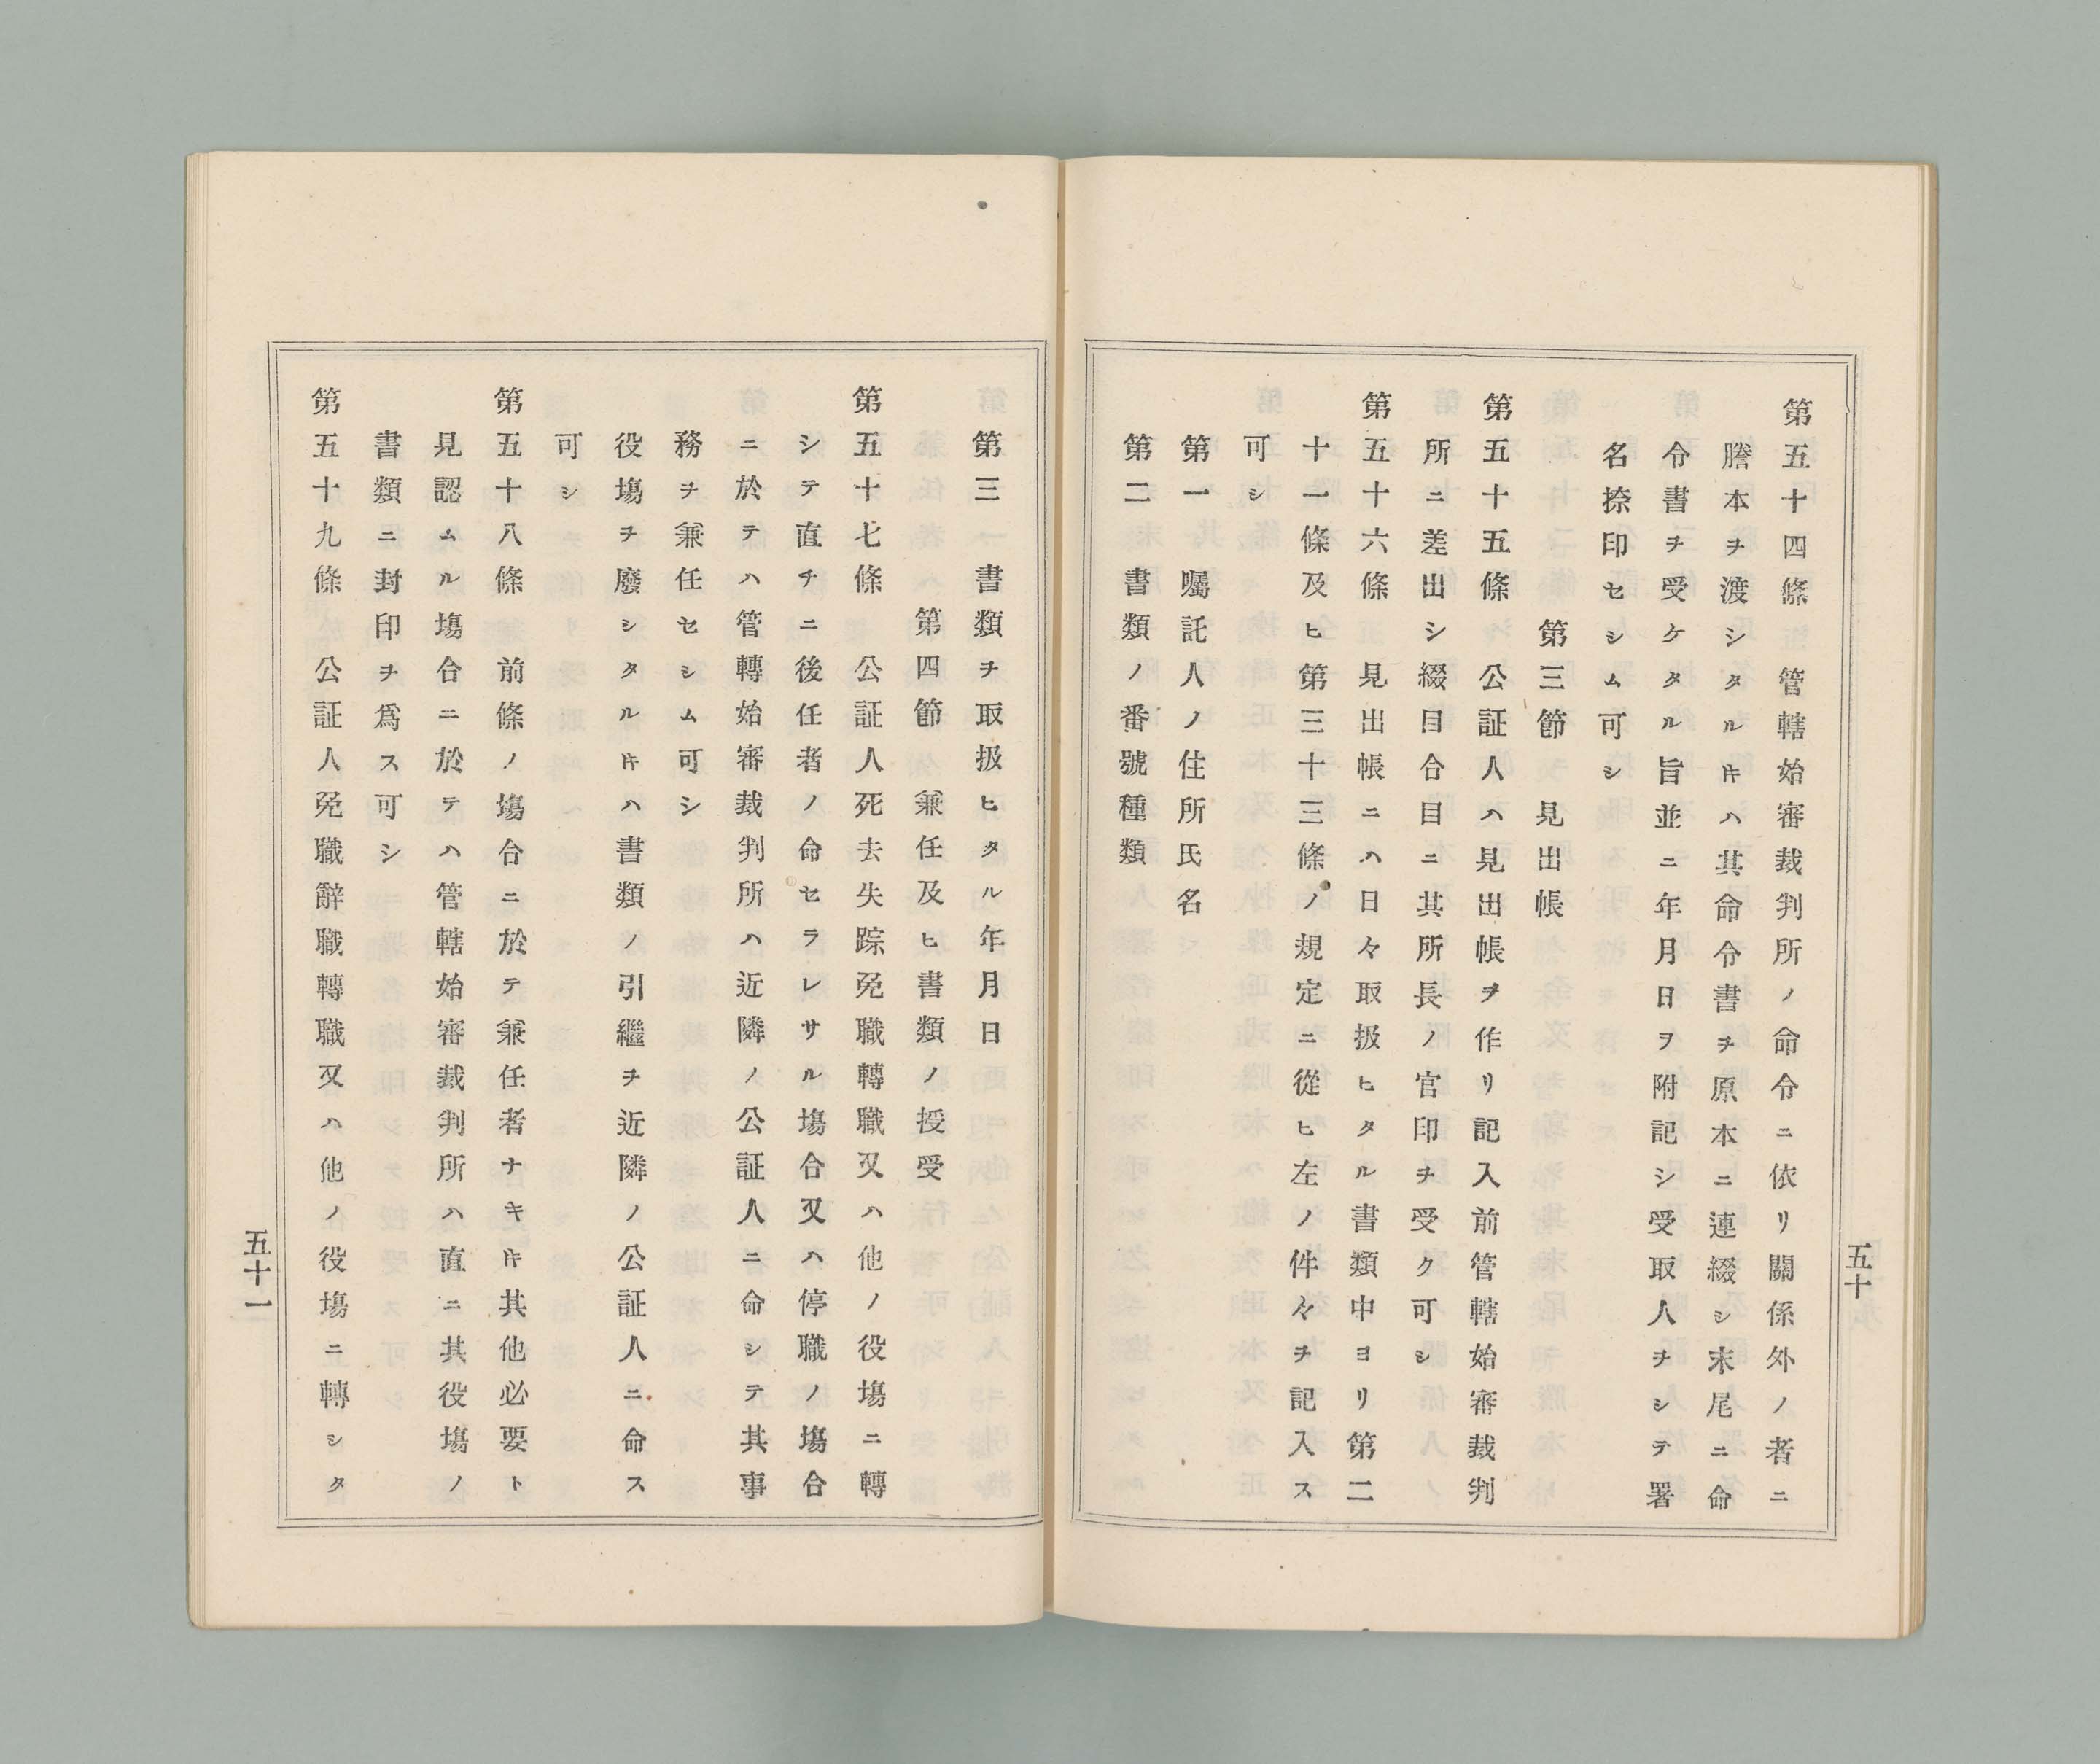 第五十四條　管轄始審裁判所ノ命令ニ依リ關係外ノ者ニ
謄本ヲ渡シタルキハ其命令書ヲ原本ニ連綴シ末尾ニ命
令書ヲ受ケタル旨並ニ年月日ヲ附記シ受取人ヲシテ署
名捺印セシム可シ
第三節　見出帳
第五十五條　公証人ハ見出帳ヲ作リ記入前管轄始審裁判
所ニ差出シ綴目合目ニ其所長ノ官印ヲ受ク可シ
第五十六條　見出帳ニハ日々取扱ヒタル書類中ヨリ第二
十一條及ヒ第三十三條ノ規定ニ從ヒ左ノ件々ヲ記入ス
可シ
第一　囑託人ノ住所氏名
第二　書類ノ番號種類
五十
第三　書類ヲ取扱ヒタル年月日
第四節　兼任及ヒ書類ノ授受
第五十七條　公証人死去失踪免職轉職又ハ他ノ役塲ニ轉
シテ直チニ後任者ノ命セラレサル塲合又ハ停職ノ塲合
ニ於テハ管轄始審裁判所ハ近隣ノ公証人ニ命シテ其事
務ヲ兼任セシム可シ
役塲ヲ廢シタルキハ書類ノ引繼ヲ近隣ノ公証人ニ命ス
可シ
第五十八條　前條ノ塲合ニ於テ兼任者ナキキ其他必要ト
見認ムル塲合ニ於テハ管轄始審裁判所ハ直ニ其役塲ノ
書類ニ封印ヲ爲ス可シ
第五十九條　公証人免職辭職轉職又ハ他ノ役塲ニ轉シタ
五十一